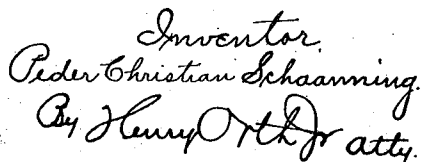 Inventor.
Peder Christian Schaanning.
By Henry Orth Jr atty.